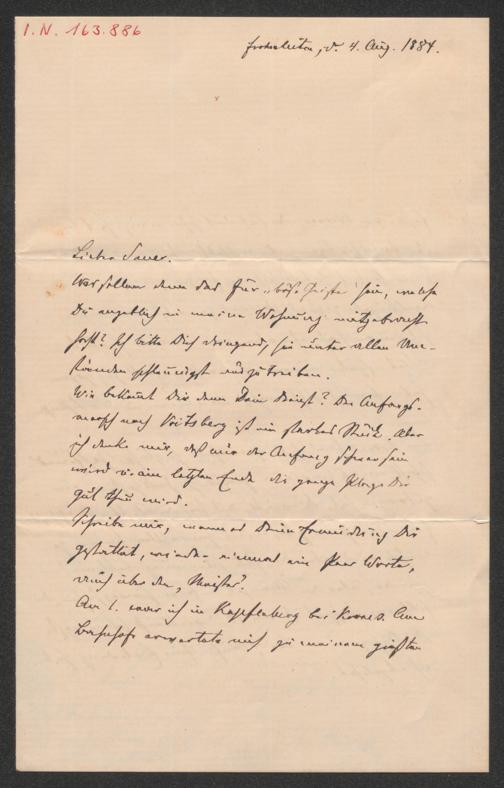 I.N. 163.886
Frohnleiten, d. 4. Aug. 1884.
Lieber Sauer.
Was sollen denn das für „böse Geister" sein, welche
Du angeblich in meine Wohnung mitgebracht
hast? Ich bitte Dich dringend, sie unter allen Um-
ständen schleunigst auszutreiben.
Wie bekömmt Dir denn Dein Dienst? Der Anfangs-
marsch nach Voitsberg ist ein starkes Stück. Aber
ich denke mir, daß nur der Anfang schwer sein
wird u. am letzten Ende die ganze Plage Dir
gut thun wird.
Schreibe mir, wenn es Deine Ermüdung Dir
gestattet, wieder einmal ein Paar Worte,
auch über den „Meister".
Am 1. war ich in Kapfenberg bei Am
Bahnhofe erwartete mich zu meinem größten